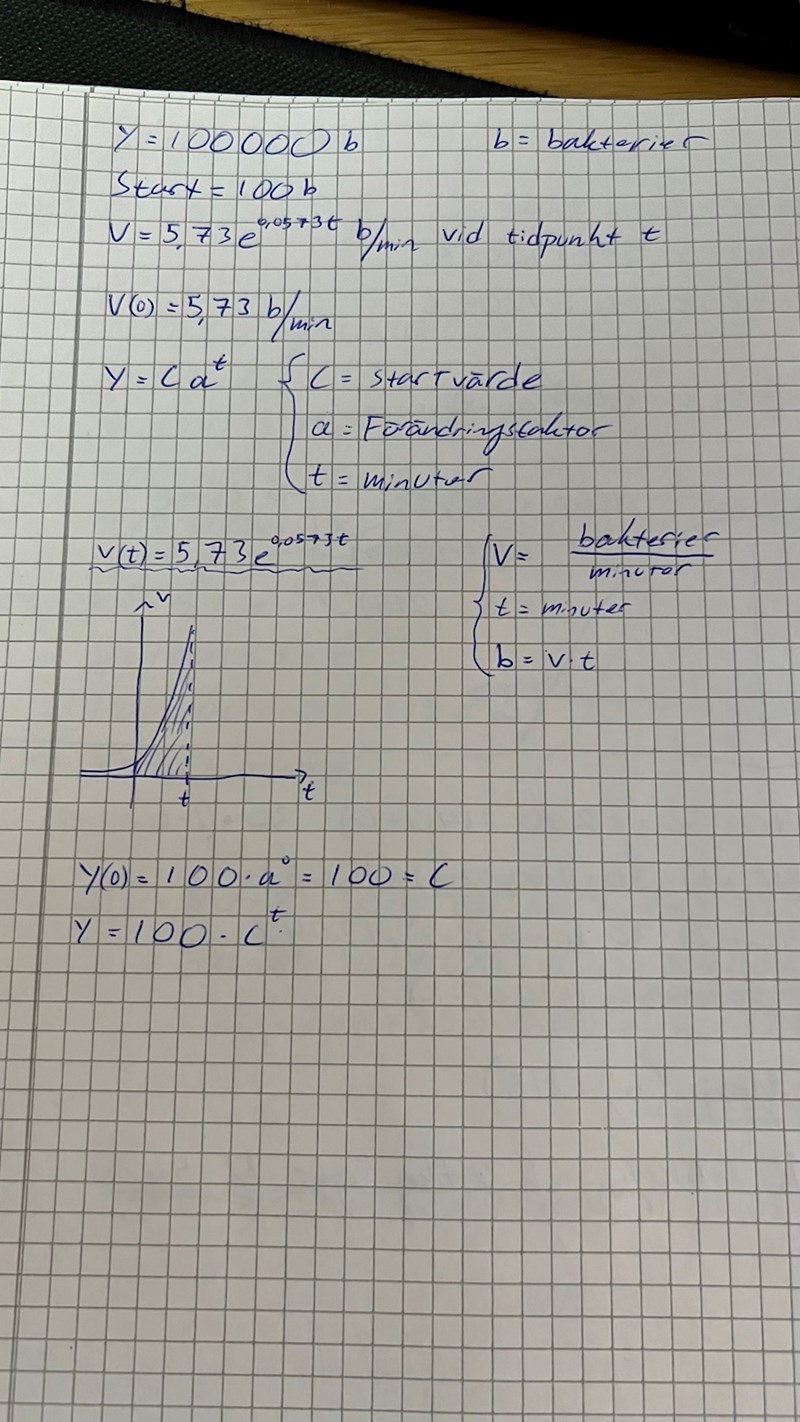 y = 100000 b b = bakterier
Start = 100 b
V = 5,73e^0,0573t b/min vid tidpunkt t
V(0) = 5,73 b/min
y = C a^t { C = startvärde
a = Förändringsfaktor
t = minuter
V(t) = 5,73e^0,0573t { V = bakterier/minuter
t = minuter
b = v·t
v
t
t
y(0) = 100·a^0 = 100 = C
y = 100 · C^t